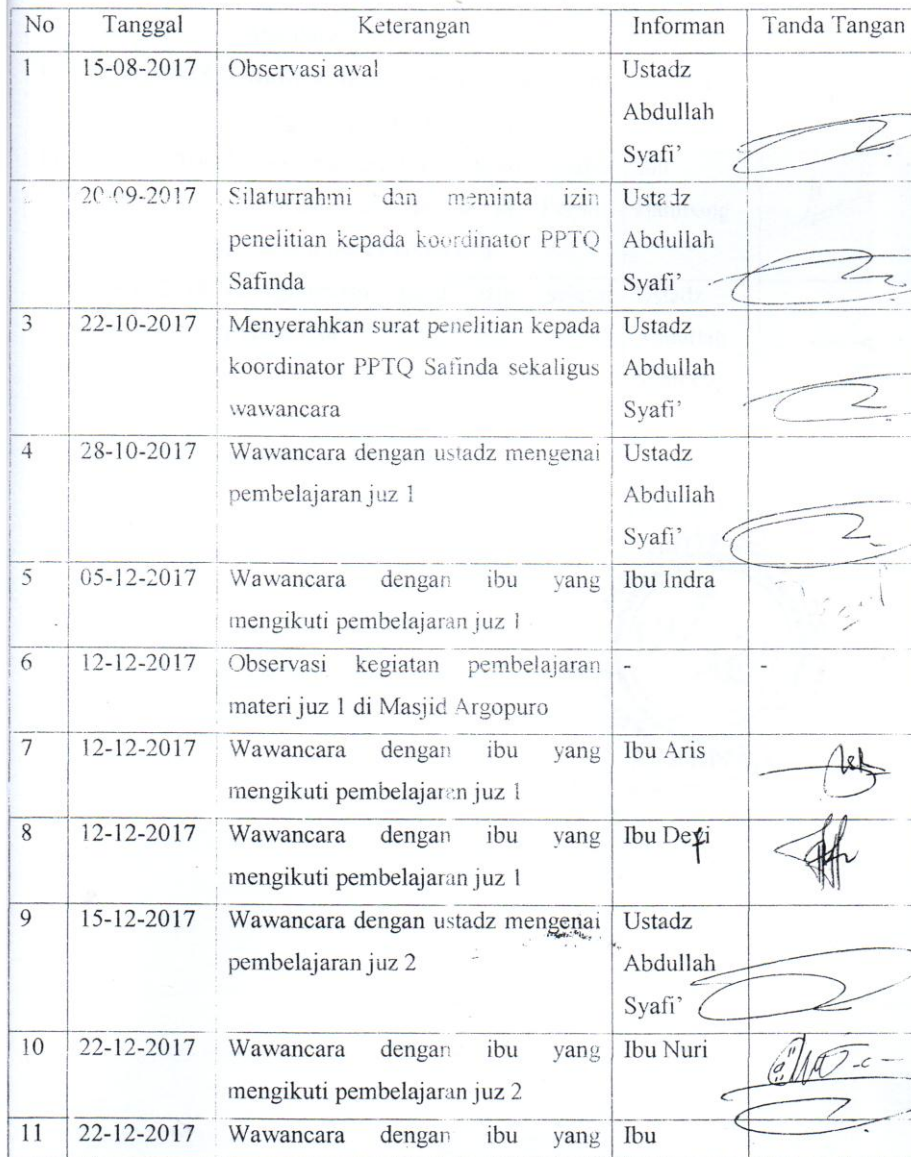 No Tanggal Keterangan Informan Tanda Tangan
1 15-08-2017 Observasi awal Ustadz
Abdullah
Syafi'
2 20-09-2017 Silaturrahmi dan meminta izin Ustadz
penelitian kepada koordinator PPTQ Abdullah
Safinda Syafi'
3 22-10-2017 Menyerahkan surat penelitian kepada Ustadz
koordinator PPTQ Safinda sekaligus Abdullah
wawancara Syafi'
4 28-10-2017 Wawancara dengan ustadz mengenai Ustadz
pembelajaran juz 1 Abdullah
Syafi'
5 05-12-2017 Wawancara dengan ibu yang Ibu Indra
mengikuti pembelajaran juz 1
6 12-12-2017 Observasi kegiatan pembelajaran - -
materi juz 1 di Masjid Argopuro
7 12-12-2017 Wawancara dengan ibu yang Ibu Aris
mengikuti pembelajaran juz 1
8 12-12-2017 Wawancara dengan ibu yang Ibu
mengikuti pembelajaran juz 1
9 15-12-2017 Wawancara dengan ustadz mengenai Ustadz
pembelajaran juz 2 Abdullah
Syafi'
10 22-12-2017 Wawancara dengan ibu yang Ibu Nuri
mengikuti pembelajaran juz 2
11 22-12-2017 Wawancara dengan ibu yang Ibu